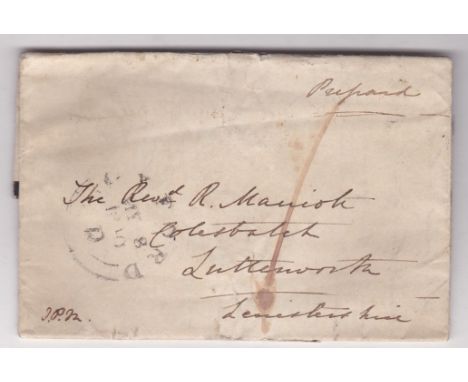 Prepaid
The Revd. R. Marriott
Cotesbatch
Lutterworth
Leicestershire
J.P.M.